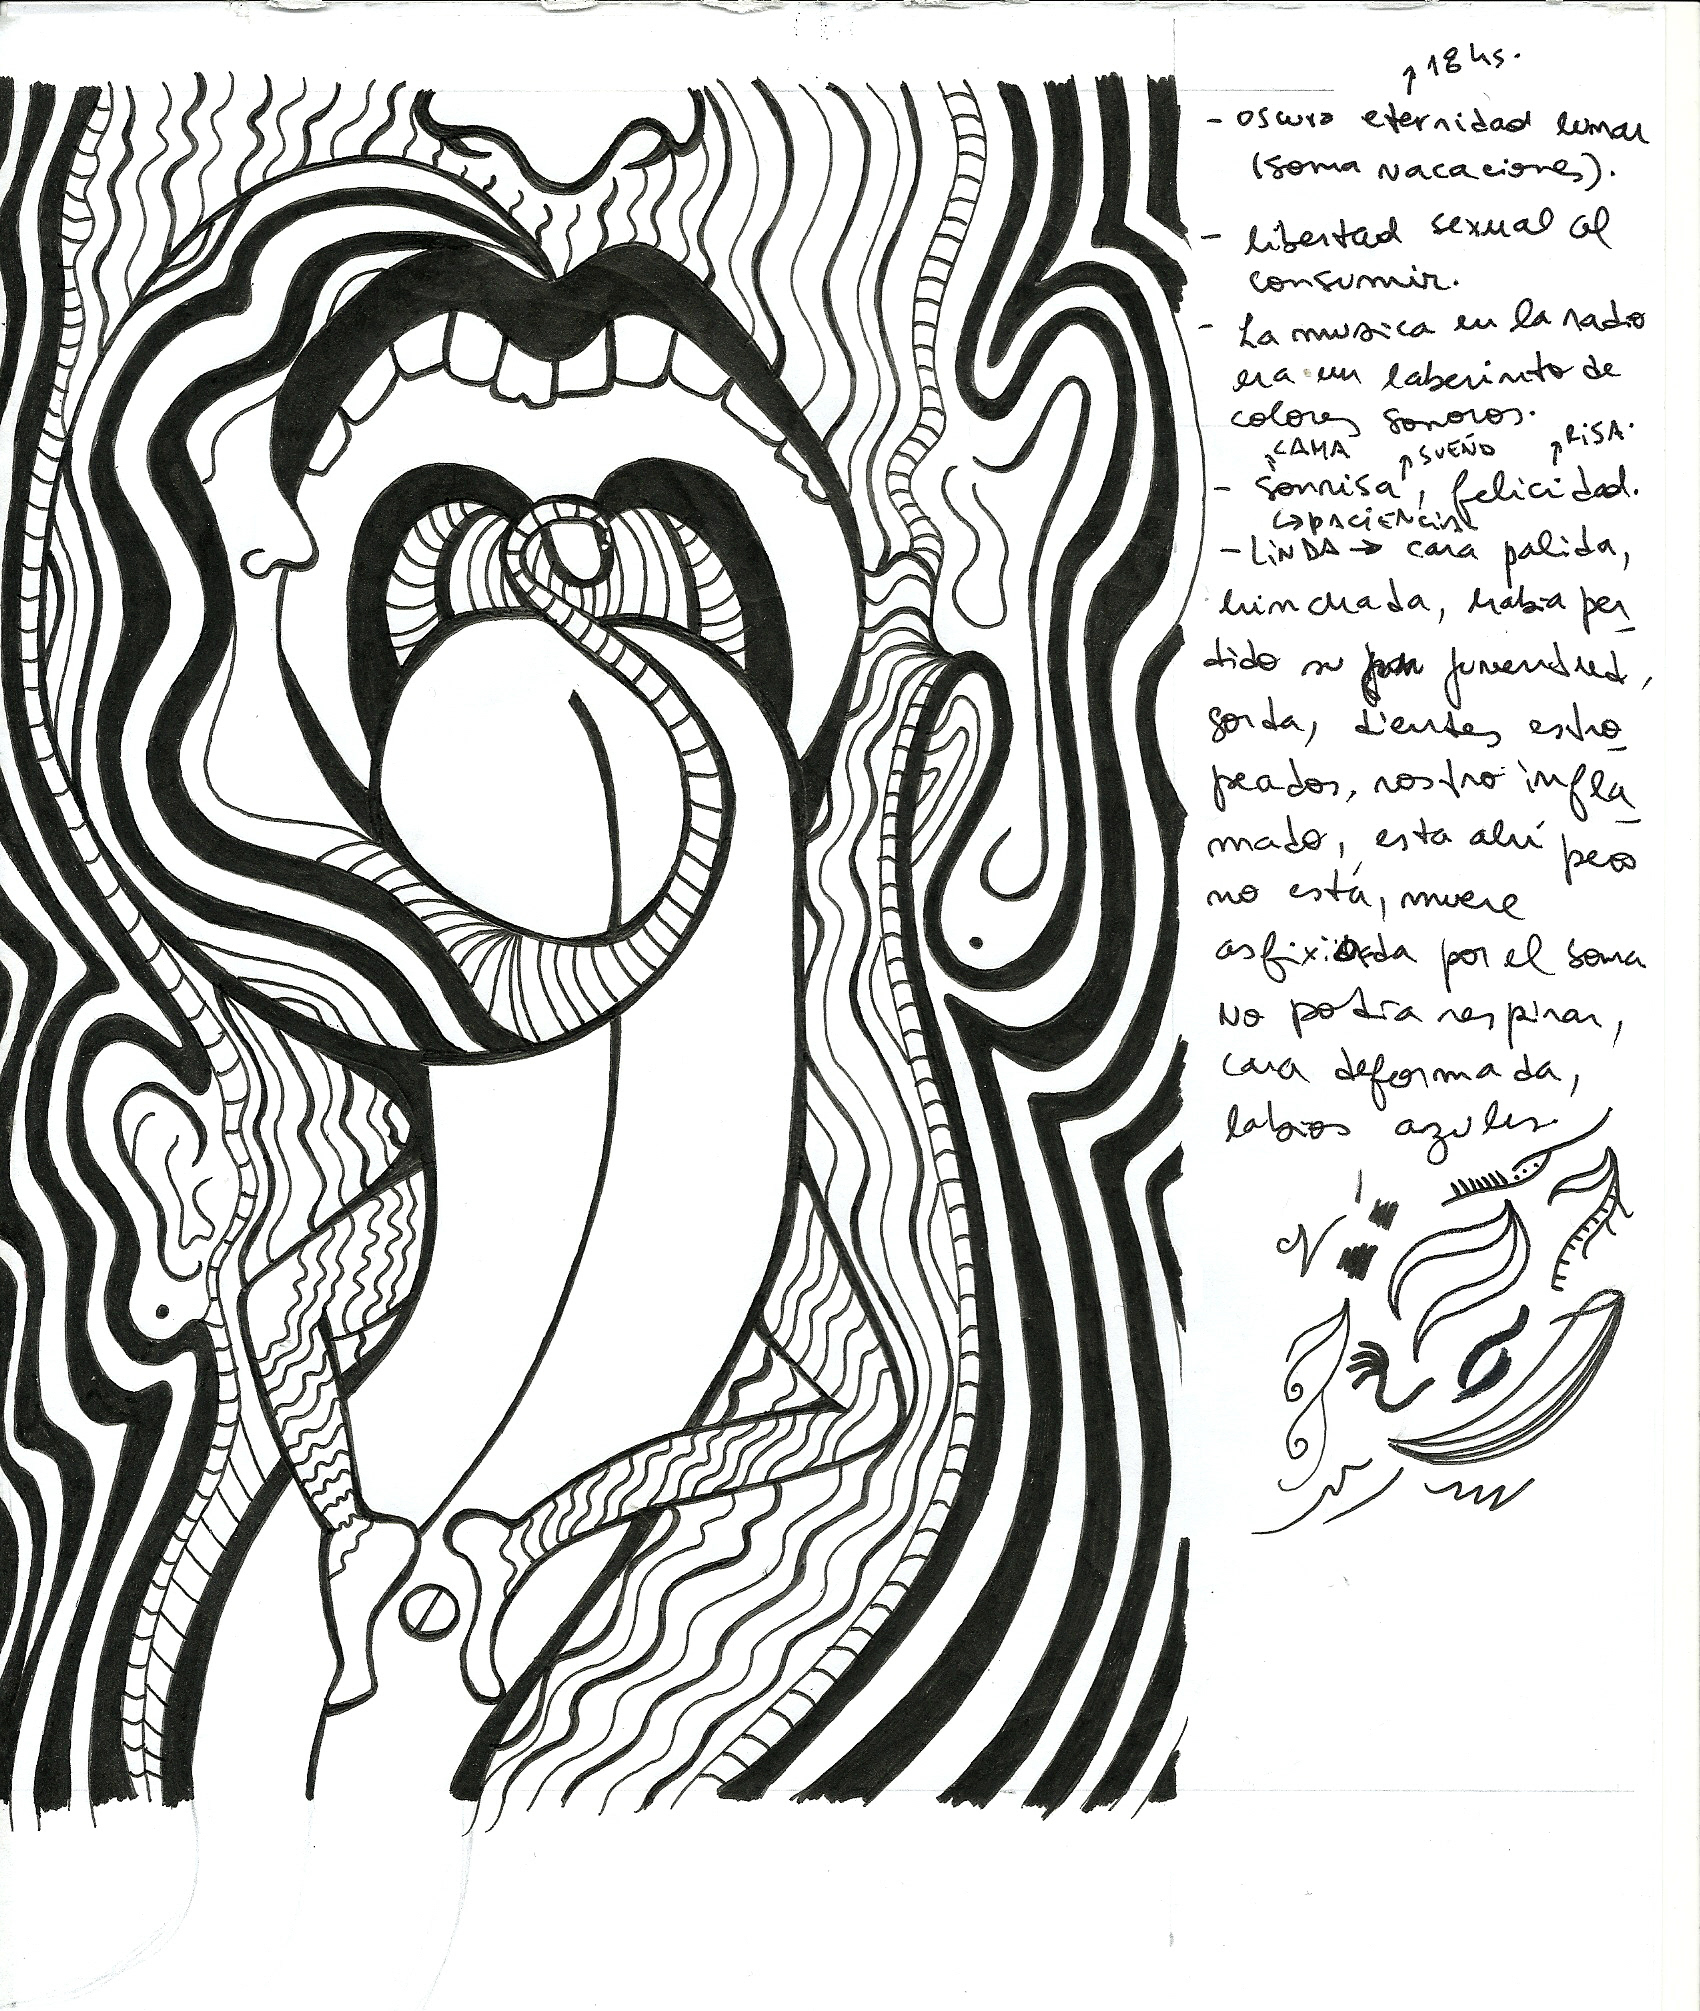 ↑18 hs.
- oscura eternidad lunar
(soma vacaciones).
- libertad sexual al
consumir.
- La musica en la radio
era un laberinto de
colores sonoros.
↑CAMA ↑SUEÑO ↑RISA.
- sonrisa, felicidad.
↳PACIENCIA
- LINDA → cara palida,
hinchada, habia per_
dido su juventud,
gorda, dientes estro_
peados, rostro infla_
mado, esta ahí pero
no está, muere
asfixiada por el soma
NO podia respirar,
cara deformada,
labios azules.